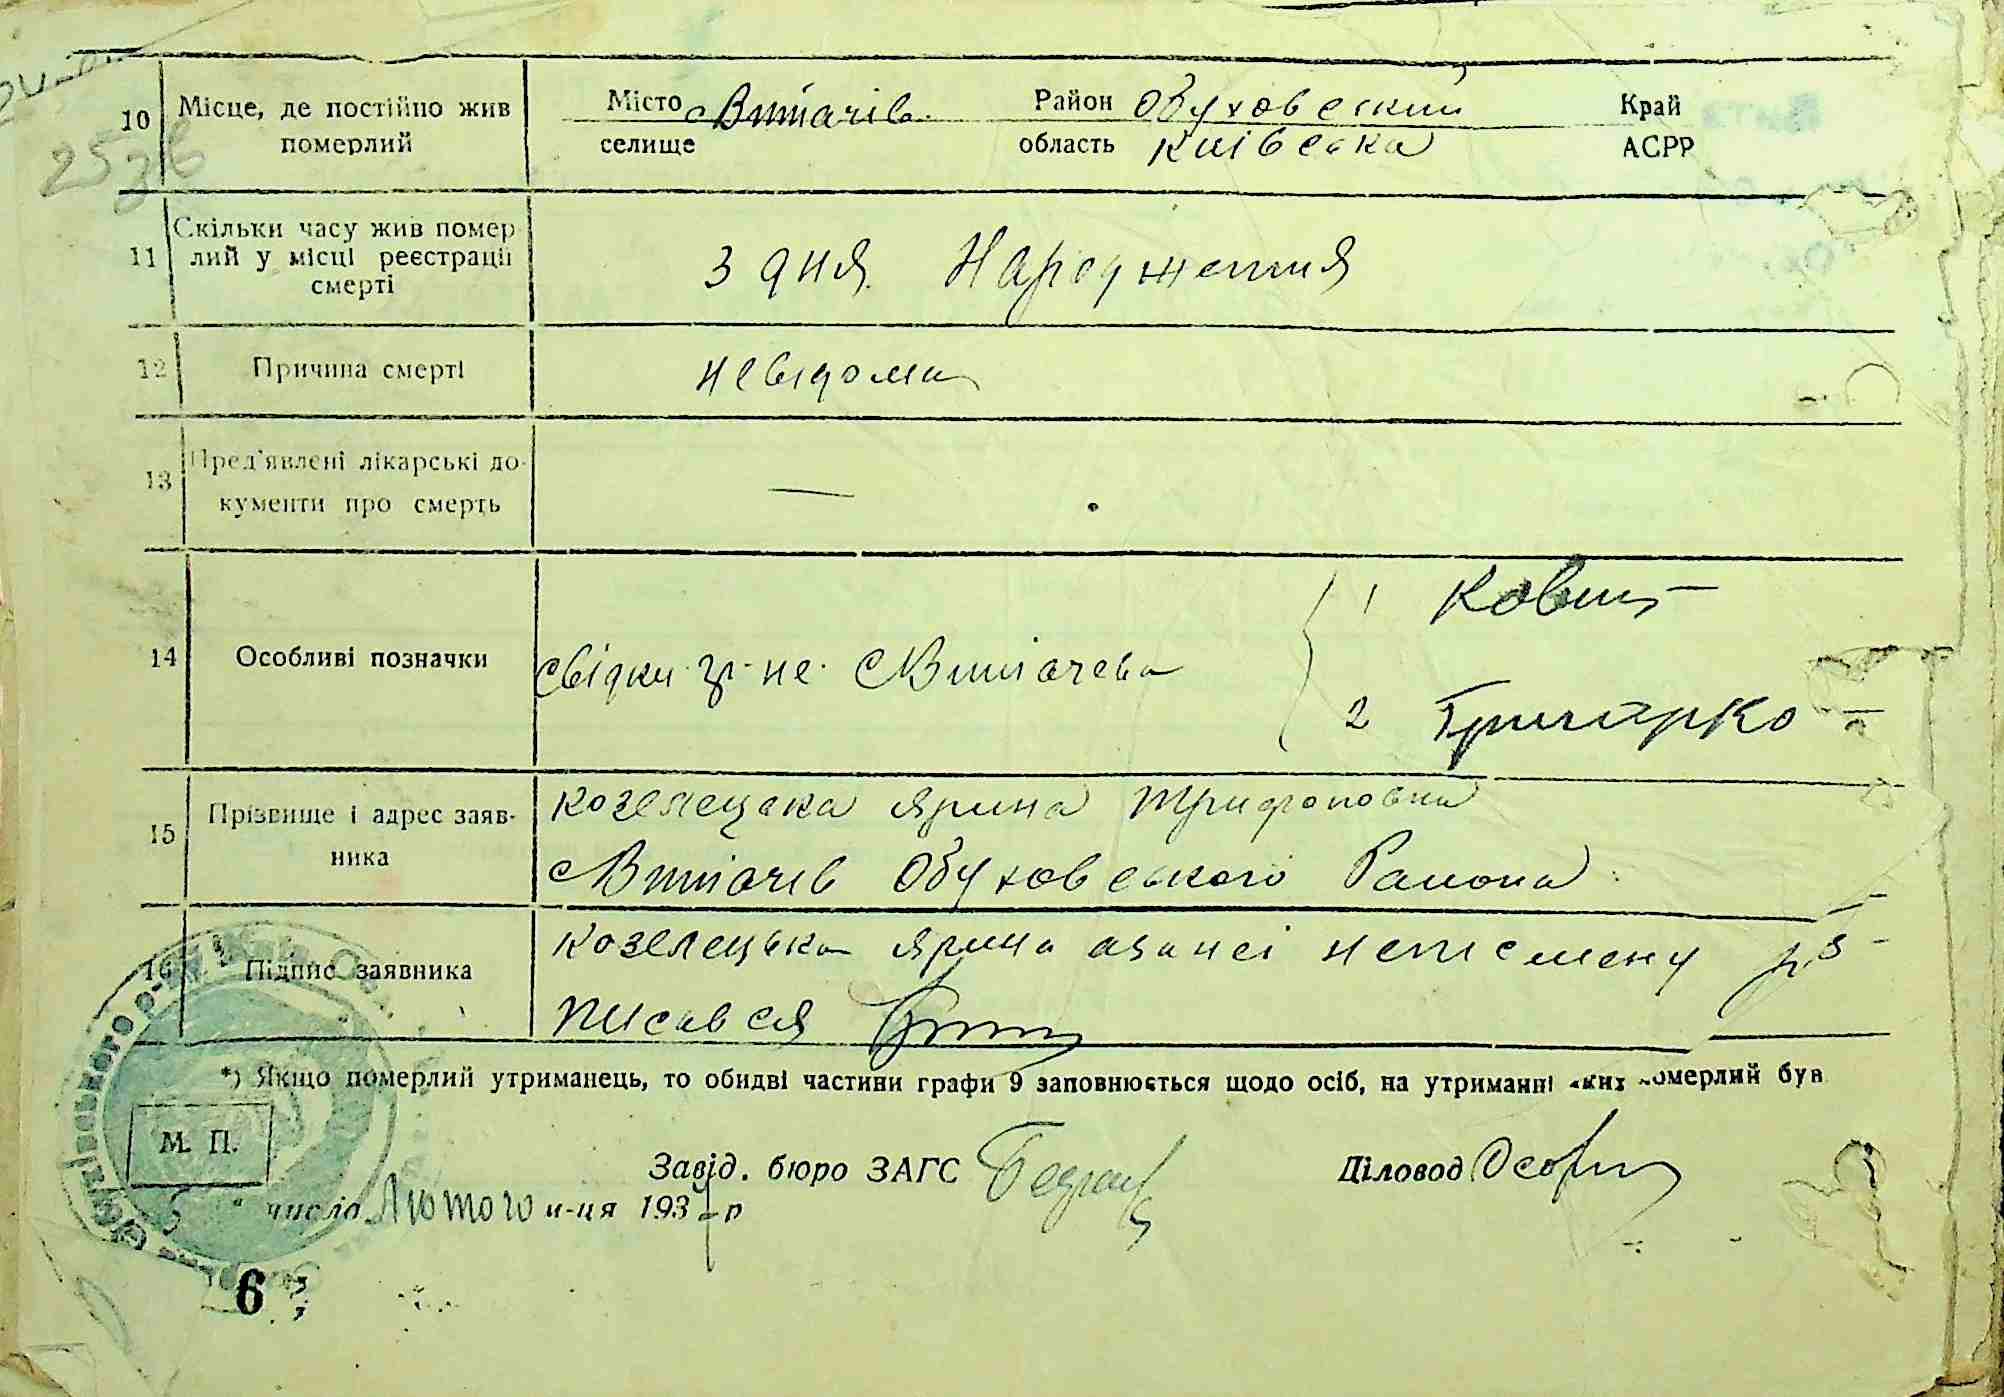 10 Місце, де постійно жив Місто с Витачів Район Обуховський Край
померлий селище область Київська АСРР
2536
11 Скільки часу жив помер
лий у місці реєстрації
смерті
З дня Народження
12 Причина смерті невідома
13 Пред'явлені лікарські до-
кументи про смерть
—
14 Особливі позначки свідки гр-не с Витачева
1
2 Гричарко
15 Прізвище і адрес заяв-
ника
Козелецька Ярина Трифоновна
с Витачів Обуховського Района
16 Підпис заявника
Козелецька Ярина а за неї неписмену роз-
писався
*) Якщо померлий утриманець, то обидві частини графи 9 заповнюється щодо осіб, на утриманні яких померлий був
М. П.
Завід. бюро ЗАГС
Діловод
" числа Лютого м-ця 193 р
6